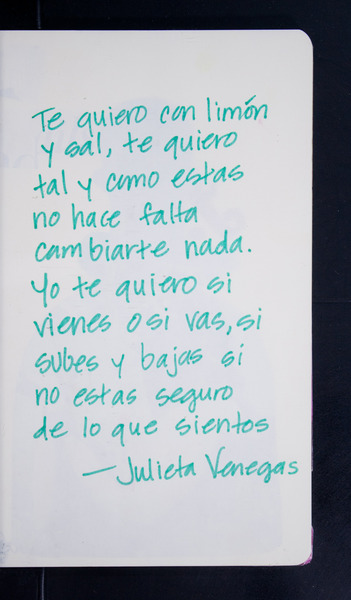 Te quiero con limón
y sal, te quiero
tal y como estas
no hace falta
cambiarte nada.
Yo te quiero si
vienes o si vas, si
subes y bajas si
no estas seguro
de lo que sientos
— Julieta Venegas